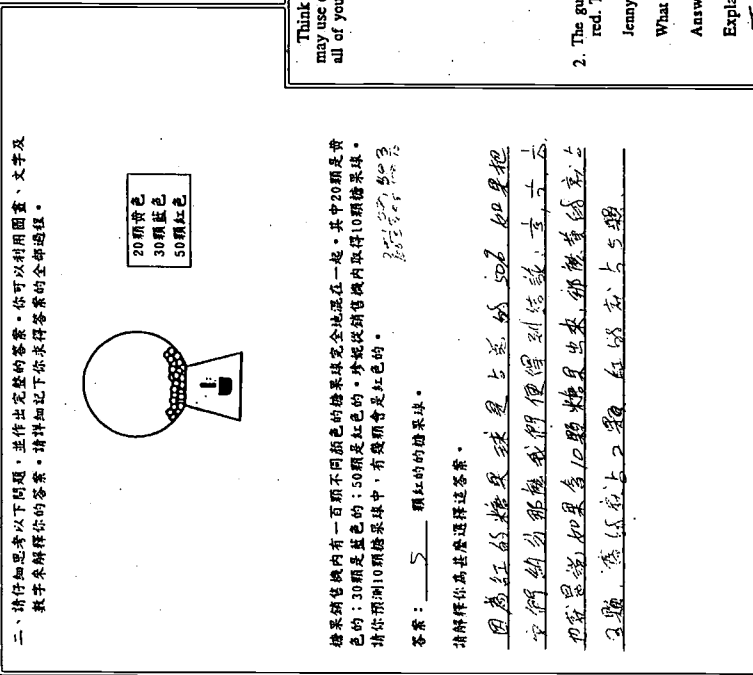 二、請仔細思考以下問題，並作出完整的答案。你可以利用圖畫、文字及
數字來解釋你的答案。請詳細記下你求得答案的全部過程。
20顆黃色
30顆藍色
50顆紅色
糖果銷售機內有一百顆不同顏色的糖果球完全地混在一起。其中20顆是黃
色的；30顆是藍色的；50顆是紅色的。珍妮從銷售機內取得10顆糖果球。
請你預測10顆糖果球中，有幾顆會是紅色的。
答案： 5 顆紅的的糖果球。
請解釋你爲甚麼選擇這答案。
因為紅的糖果球是占总的50% 如果把
它們約分那麼我們便得到结論：
也就是說如果含10顆糖果出來，那麼黃的就占
2顆 紅的就占5顆.
Think
may use
all of you
2. The gu
red. T
Jenny
What
Answ
Expla